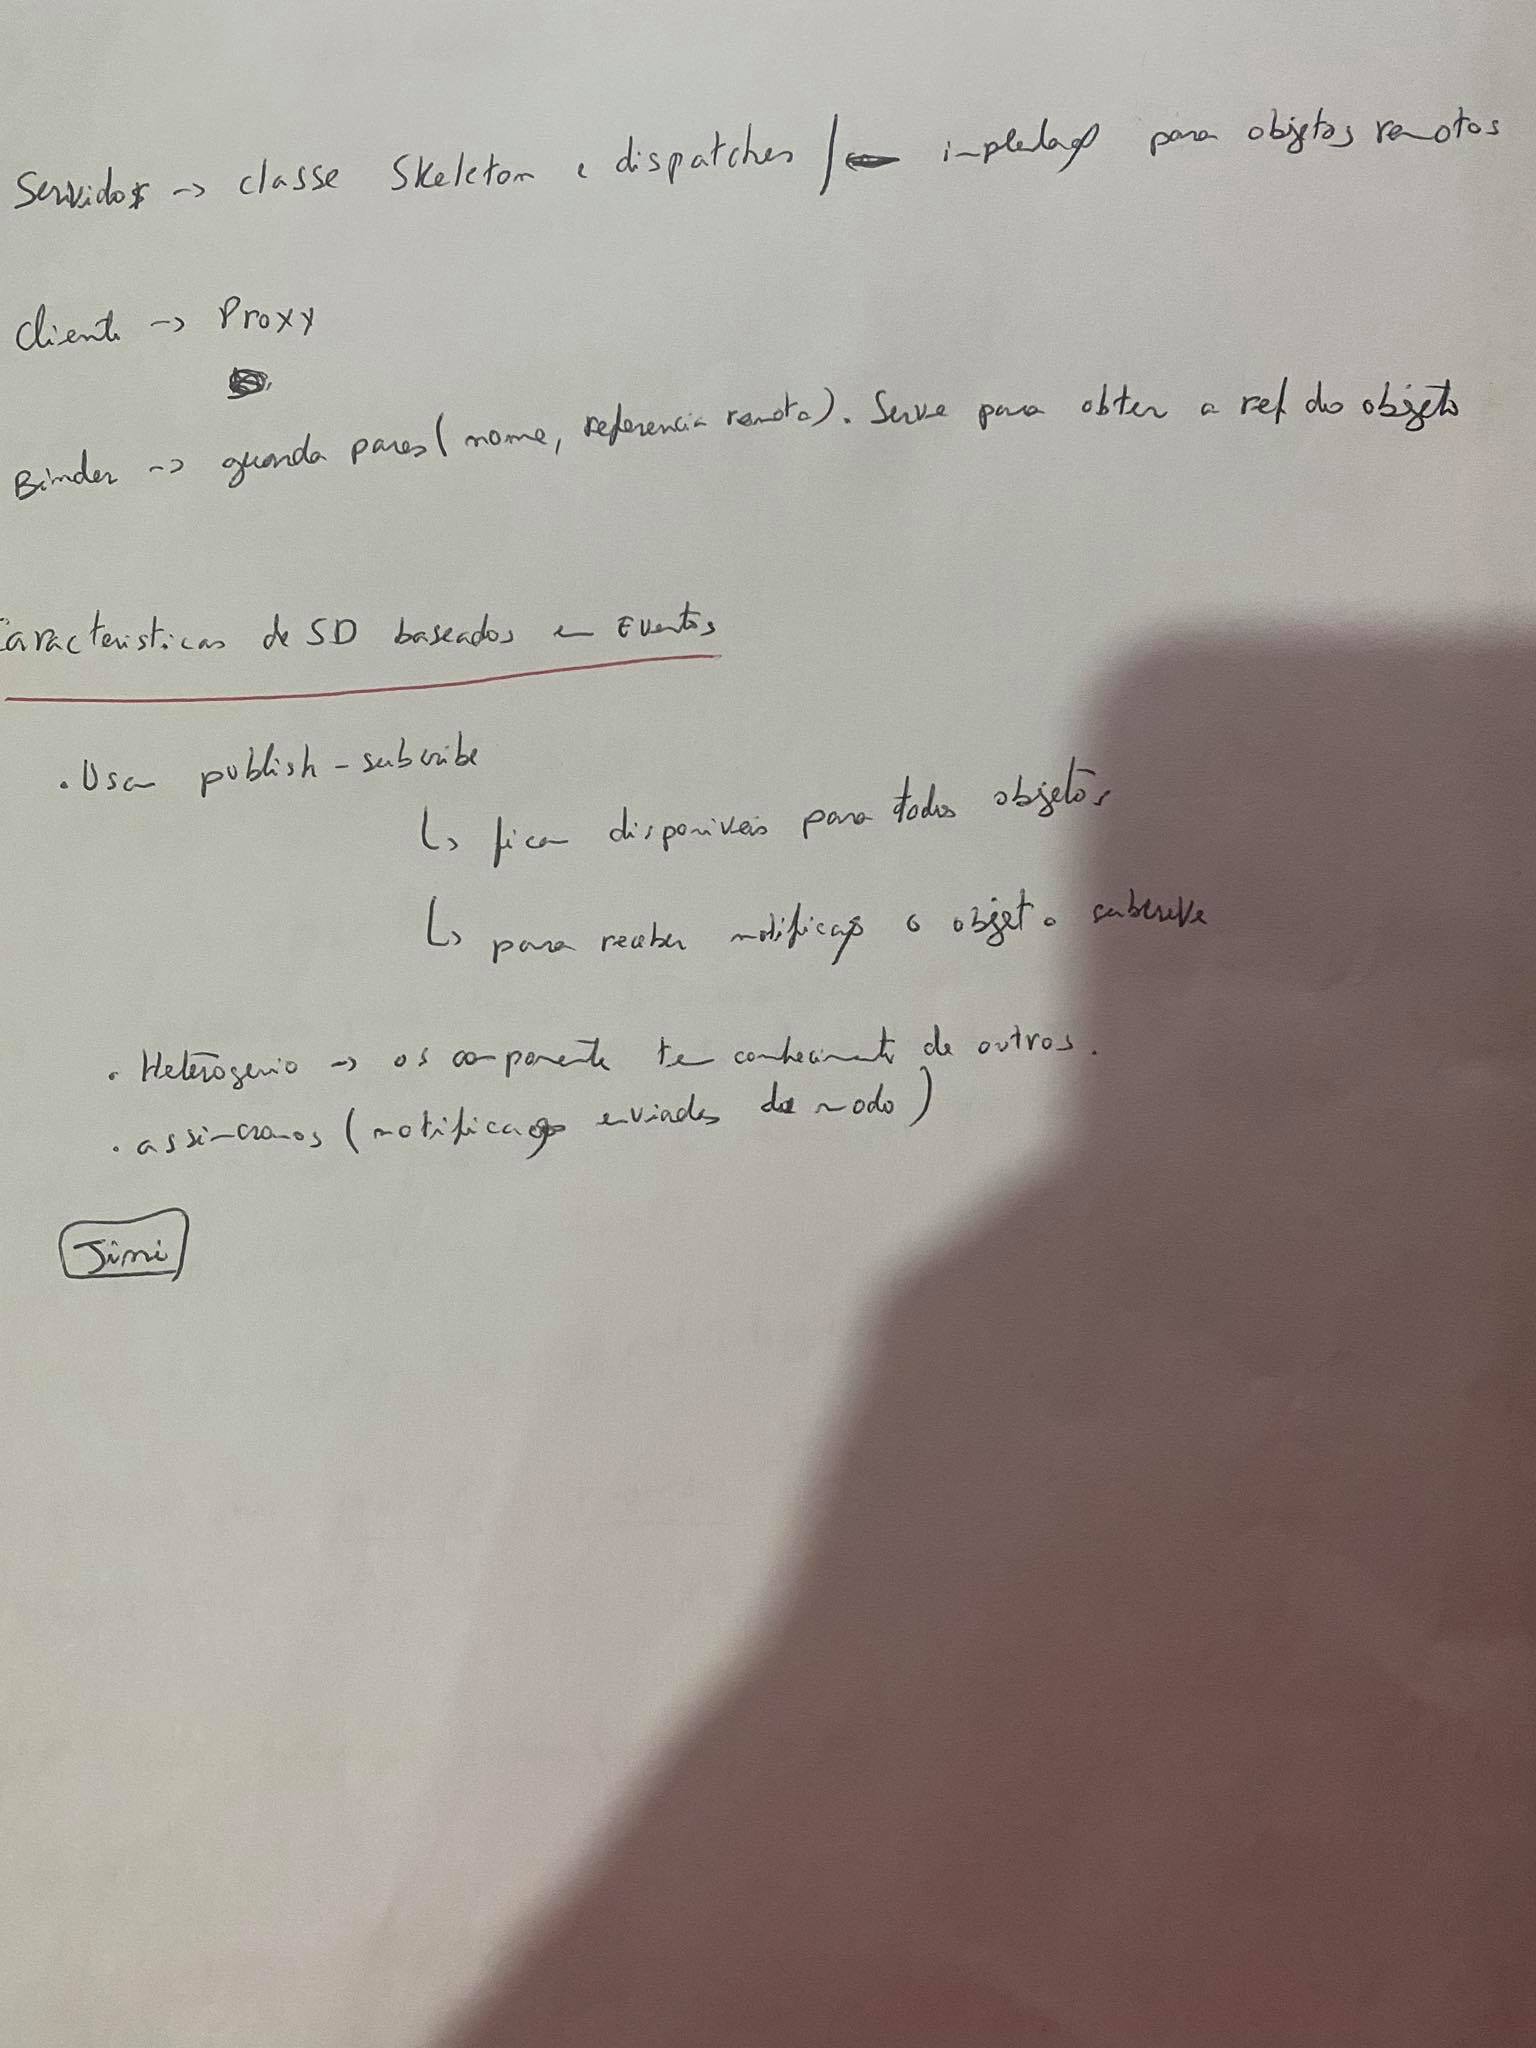 Servidor -> classe Skeleton e dispatcher / para objetos remotos
Cliente -> Proxy
Binder -> guarda pares (nome, referencia remota). Serve para obter a ref do objeto
Caracteristicas de SD baseados em Eventos
. Usam publish-subcribe
↳ ficam disponiveis para todos objetos
↳ para receber o objeto subcreve
. Heterogenio -> os componente tem conhecimento de outros.
. assincronos ( enviadas de modo)
Jini